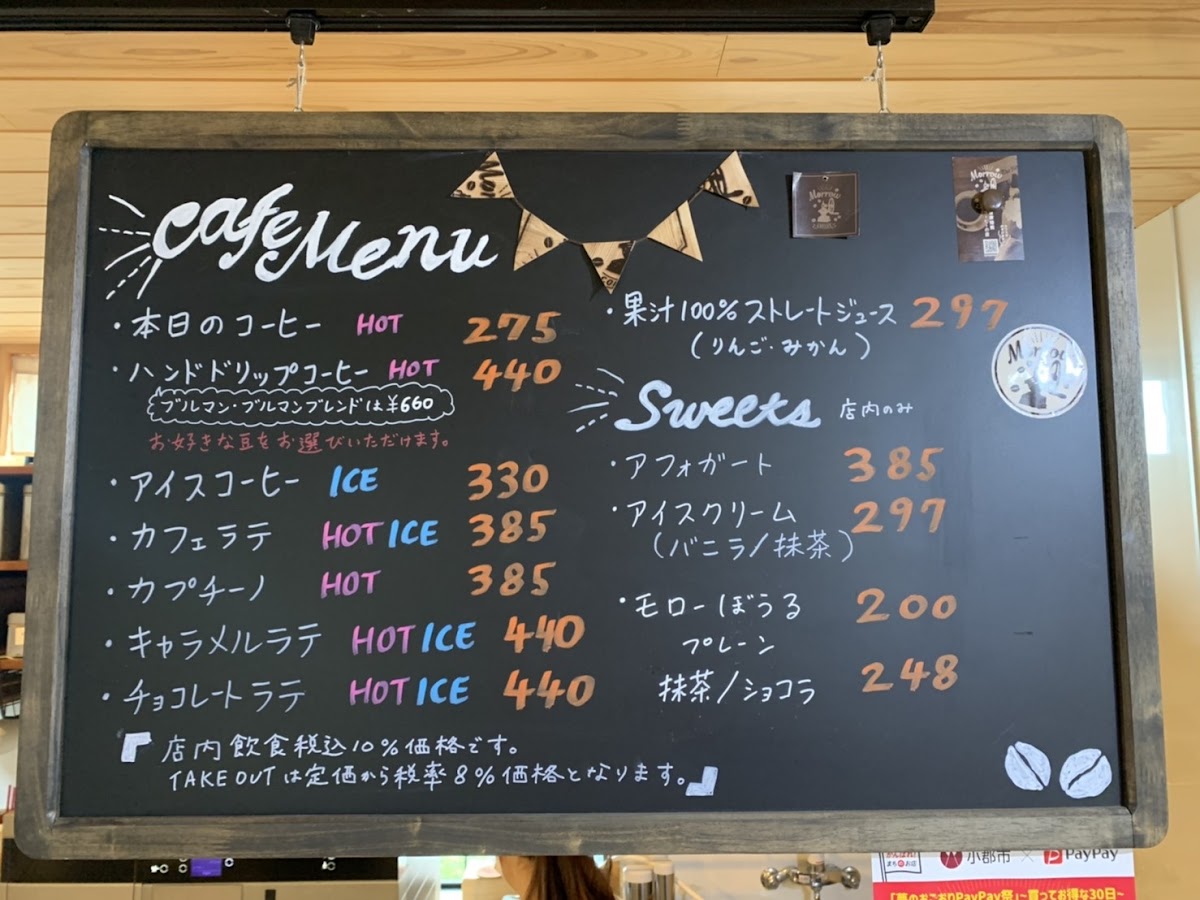 Cafe Menu
・本日のコーヒー HOT 275
・ハンドドリップコーヒー HOT 440
ブルマン・ブルマンブレンドは¥660
お好きな豆をお選びいただけます。
・アイスコーヒー ICE 330
・カフェラテ HOT ICE 385
・カプチーノ HOT 385
・キャラメルラテ HOT ICE 440
・チョコレートラテ HOT ICE 440
『店内飲食税込10%価格です。
TAKE OUTは定価から税率8%価格となります。』
・果汁100%ストレートジュース 297
(りんご・みかん)
Sweets 店内のみ
・アフォガート 385
・アイスクリーム 297
(バニラ/抹茶)
・モローぼうる 200
プレーン
抹茶/ショコラ 248
Morrow
Morrow
小郡市 × PayPay
「夢のおごおりPayPay祭」~買ってお得な30日~